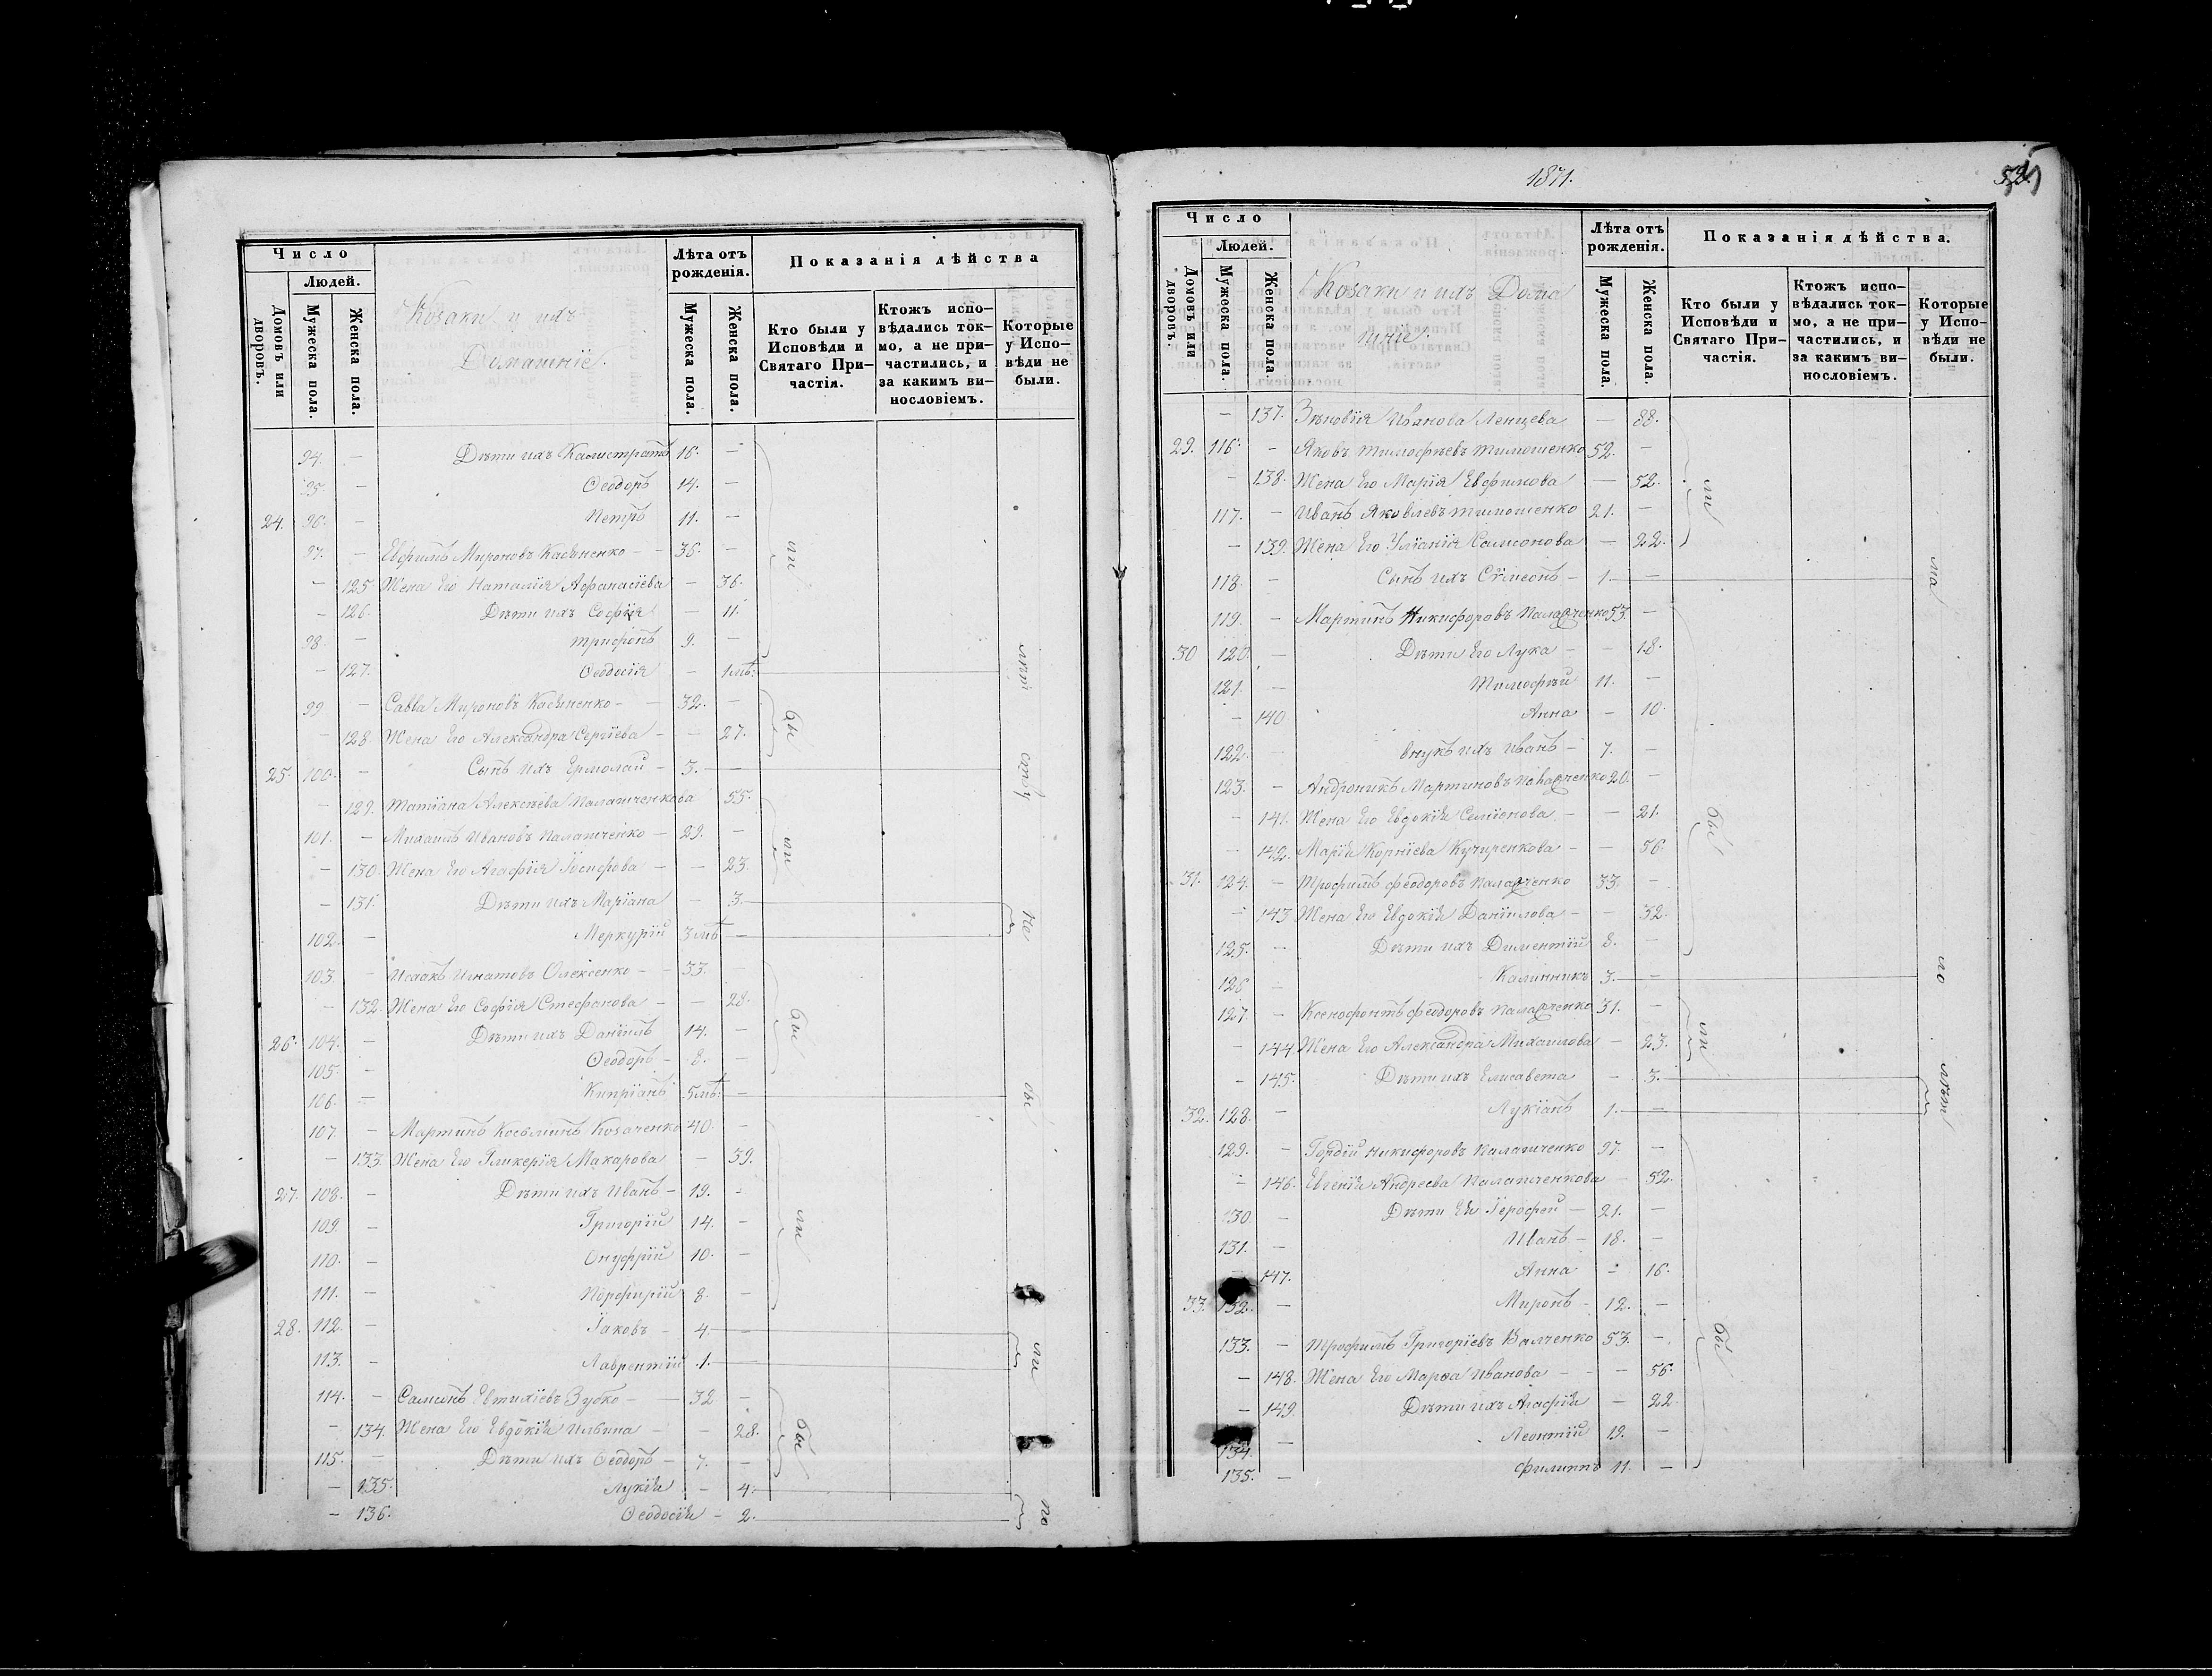 Число
Людей.
Домовъ или дворовъ.
Мужеска пола.
Женска пола.
Козаки и ихъ
Домашніе.
Лѣта отъ рожденія.
Мужеска пола.
Женска пола.
Показанія дѣйства
Кто были у Исповѣди и Святаго Причастія.
Ктожъ исповѣдались токмо, а не причастились, и за какимъ винословіемъ.
Которые у Исповѣди не были.
94. — Дѣти ихъ Калистратъ 16. —
95. — Ѳеодоръ 14. —
24. 96. — Петръ 11. —
97. — Евфимъ Мироновъ Касяненко — 36. —
— 125 Жена Его Наталія Афанасіева — 36.
— 126. Дѣти ихъ Софія — 11.
98. — Трифонъ 9. —
— 127. Ѳеодосія — 1 мѣ:
99 — Савва Мироновъ Касяненко — 32. —
— 128 Жена Его Александра Сергіева — 27.
25. 100. — Сынъ ихъ Ермолай — 3. —
— 129. Татіана Алексѣева Палатченкова 55.
101. — Михаилъ Ивановъ Палатченко — 29. —
— 130. Жена Его Агафія Іосифова — 23.
— 131. Дѣти ихъ Маріана — 3.
102. — Меркурій 3 мѣ —
103. — Исаакъ Игнатовъ Олексенко — 33. —
— 132. Жена Его Софія Стефанова — 28.
26. 104. — Дѣти ихъ Даніилъ 14. —
105. — Ѳеодоръ — 8. —
106. — Кипріанъ 5 мѣ: —
107. — Мартинъ Косьминъ Козаченко 40. —
— 133. Жена Его Гликерія Макарова — 39.
27. 108. — Дѣти ихъ Иванъ — 19. —
109. — Григорій 14. —
110. — Онуфрій 10. —
111. — Порфирій 8. —
28. 112. — Іаковъ — 4. —
113. — Лаврентій 1. —
114. — Самсонъ Евтихіевъ Зубко — 32 —
— 134. Жена Его Евдокія Ильина — 28.
115. — Дѣти ихъ Ѳеодоръ — 7. —
— 135. Лукія — 4.
— 136. Ѳеодосія — 2.
1871.
Число
Людей.
Домовъ или дворовъ.
Мужеска пола.
Женска пола.
Козаки и ихъ Дома
шніе.
Лѣта отъ рожденія.
Мужеска пола.
Женска пола.
Показанія дѣйства.
Кто были у Исповѣди и Святаго Причастія.
Ктожъ исповѣдались токмо, а не причастились, и за какимъ винословіемъ.
Которые у Исповѣди не были.
— 137. Зѣновія Иванова — 88.
29. 116. — Яковъ Тимофѣевъ Тимошенко 52. —
— 138. Жена Его Марія Евфимова — 52.
117. — Иванъ Яковлевъ Тимошенко 21. —
— 139. Жена Его Уліанія Самсонова — 22.
118. — Сынъ ихъ Сѵмеонъ — 1. —
119. — Мартинъ Никифоровъ Палатченко 53. —
30 120. — Дѣти Его Лука — 18.
121. — Тимофѣй 11. —
— 140 Анна — 10.
122. — Внукъ ихъ Иванъ — 7. —
123. — Андроникъ Мартиновъ Палатченко 20. —
— 141. Жена Его Евдокія Семіонова — 21.
— 142. Марія Корніева Кучиренкова — 56.
31. 124. — Трофимъ Феодоровъ Палатченко 33. —
— 143 Жена Его Евдокія Даніилова — 32.
125. — Дѣти ихъ Диментій 8. —
126 — Калинникъ 3. —
127. — Ксенофонтъ Феодоровъ Палатченко 31. —
— 144 Жена Его Александра Михаилова — 23.
— 145. Дѣти ихъ Елисавета — 3.
32. 128. — Лукіанъ 1. —
129. — Гордій Никифоровъ Палатченко 97. —
— 146. Евгенія Андреева Палатченкова — 52.
130. — Дѣти Ея Іерофей — 21. —
131. — Иванъ — 18. —
147. Анна — 16.
33. 132. — Миронъ — 12. —
133. — Трофимъ Григоріевъ Валченко 53. —
— 148. Жена Его Марѳа Иванова — 56.
— 149. Дѣти ихъ Агафія — 22
134. — Леонтій 19. —
135. — Филиппъ 11. —